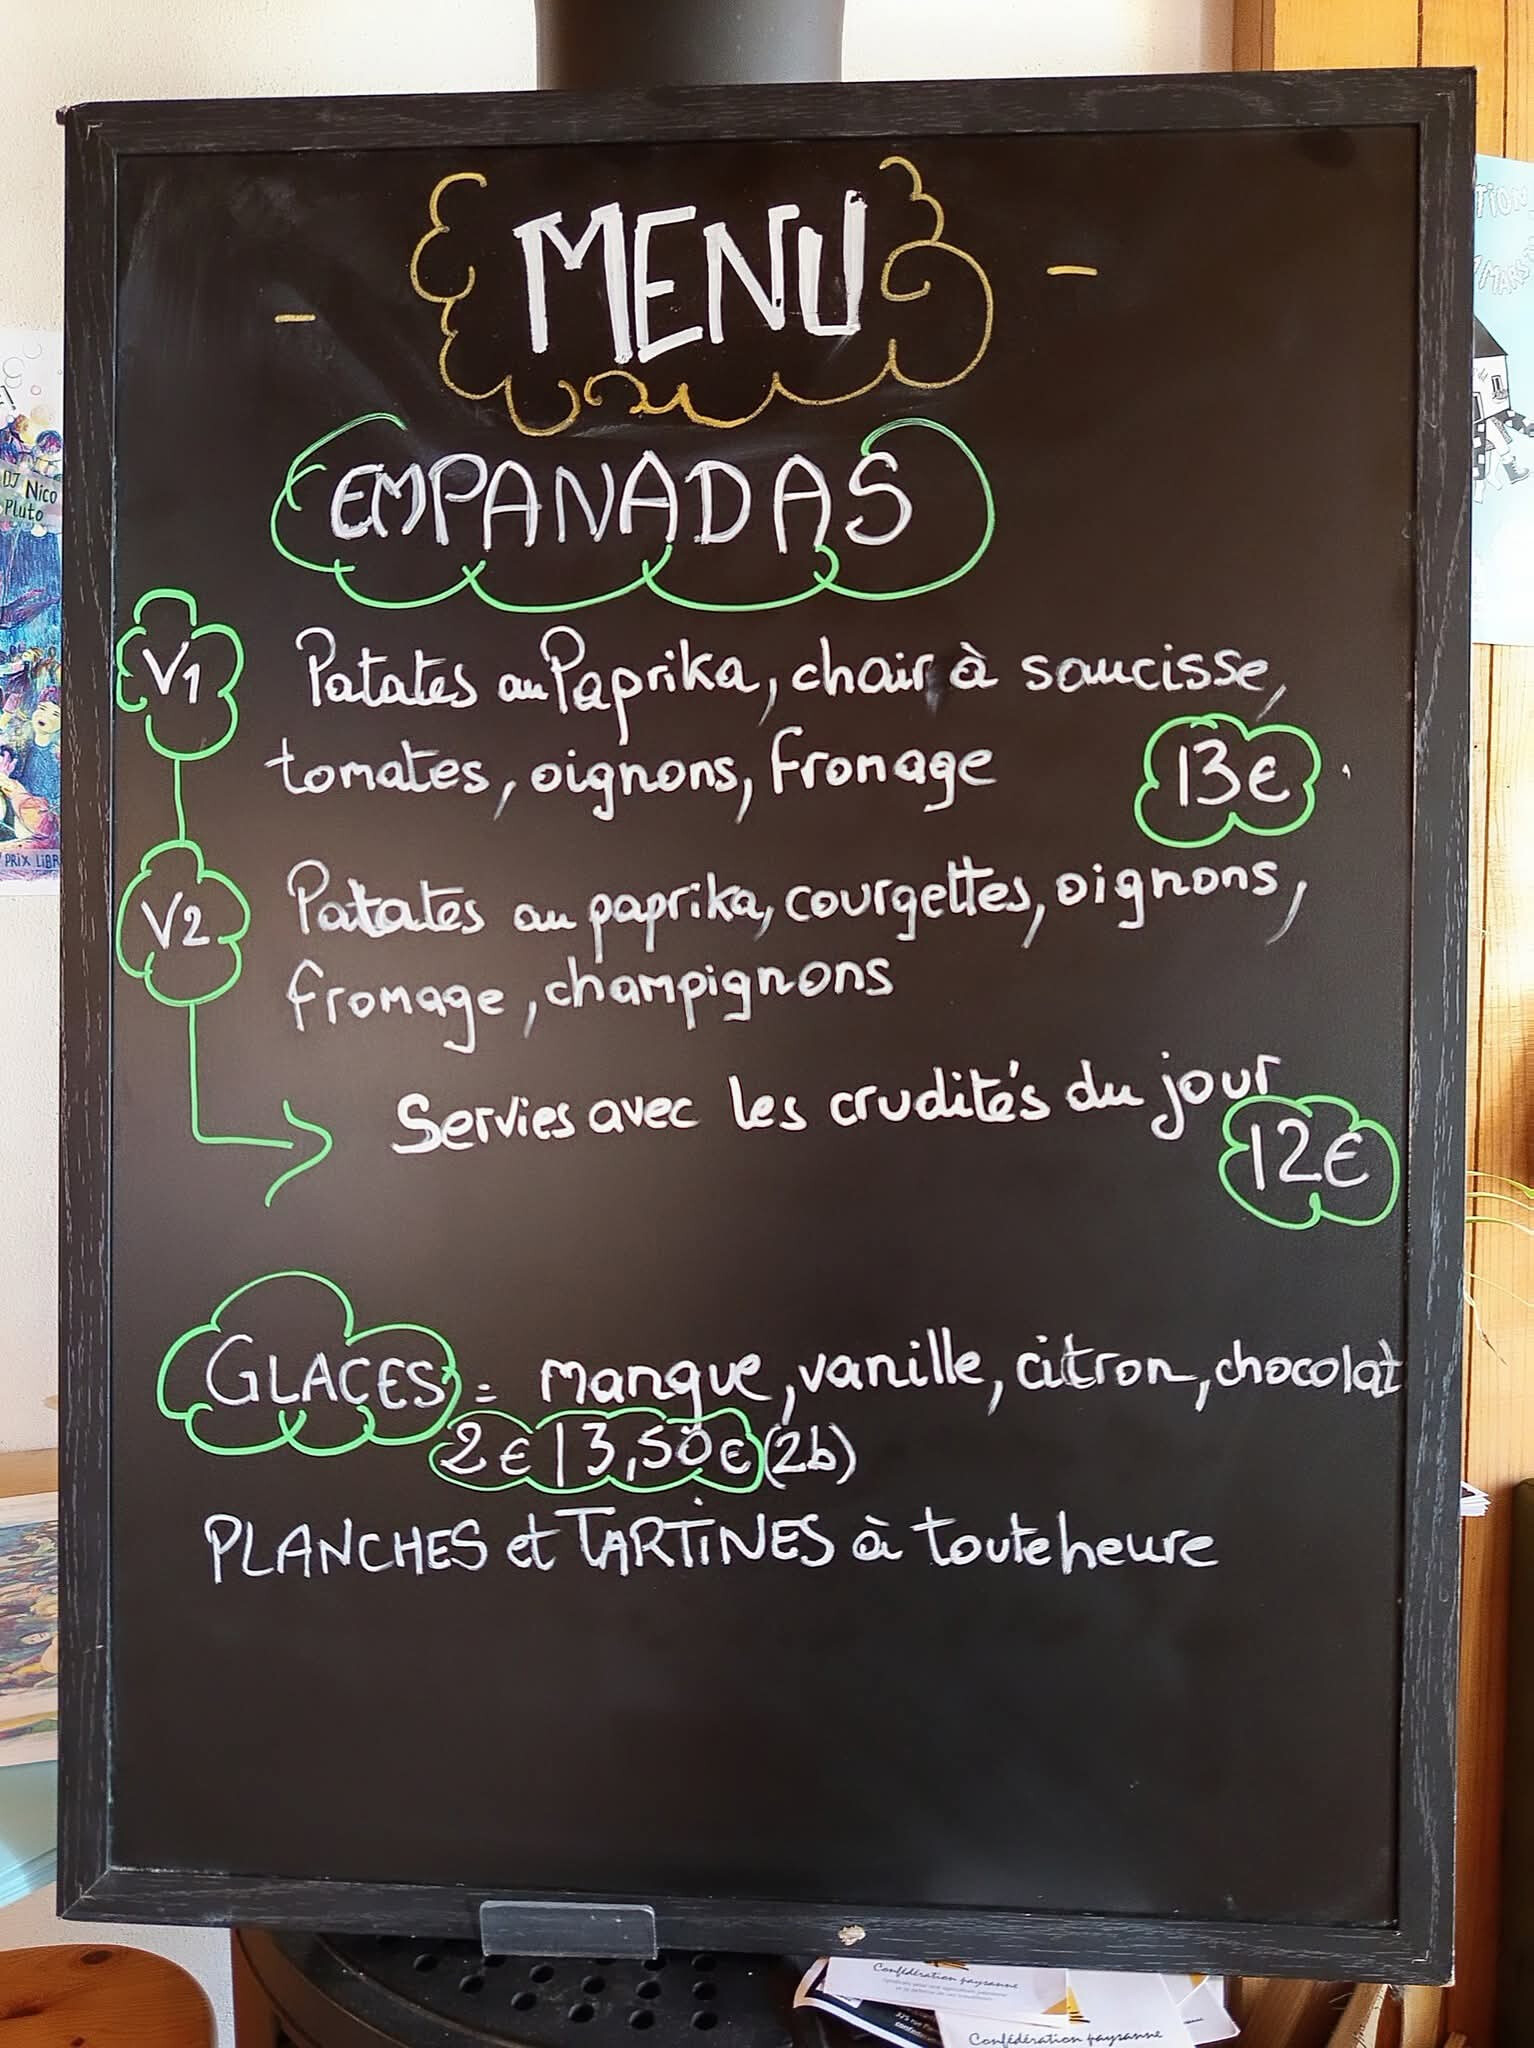 MENU
EMPANADAS
V1 Patates au Paprika, chair à saucisse,
tomates, oignons, fromage 13€
V2 Patates au paprika, courgettes, oignons,
fromage, champignons
Servies avec les crudités du jour
12€
GLACES = mangue, vanille, citron, chocolat
2€ | 3,50€ (2b)
PLANCHES et TARTINES à toute heure
DJ Nico
Pluto
PRIX LIBR
TION
MARS
Confédération paysanne
Confédération paysanne